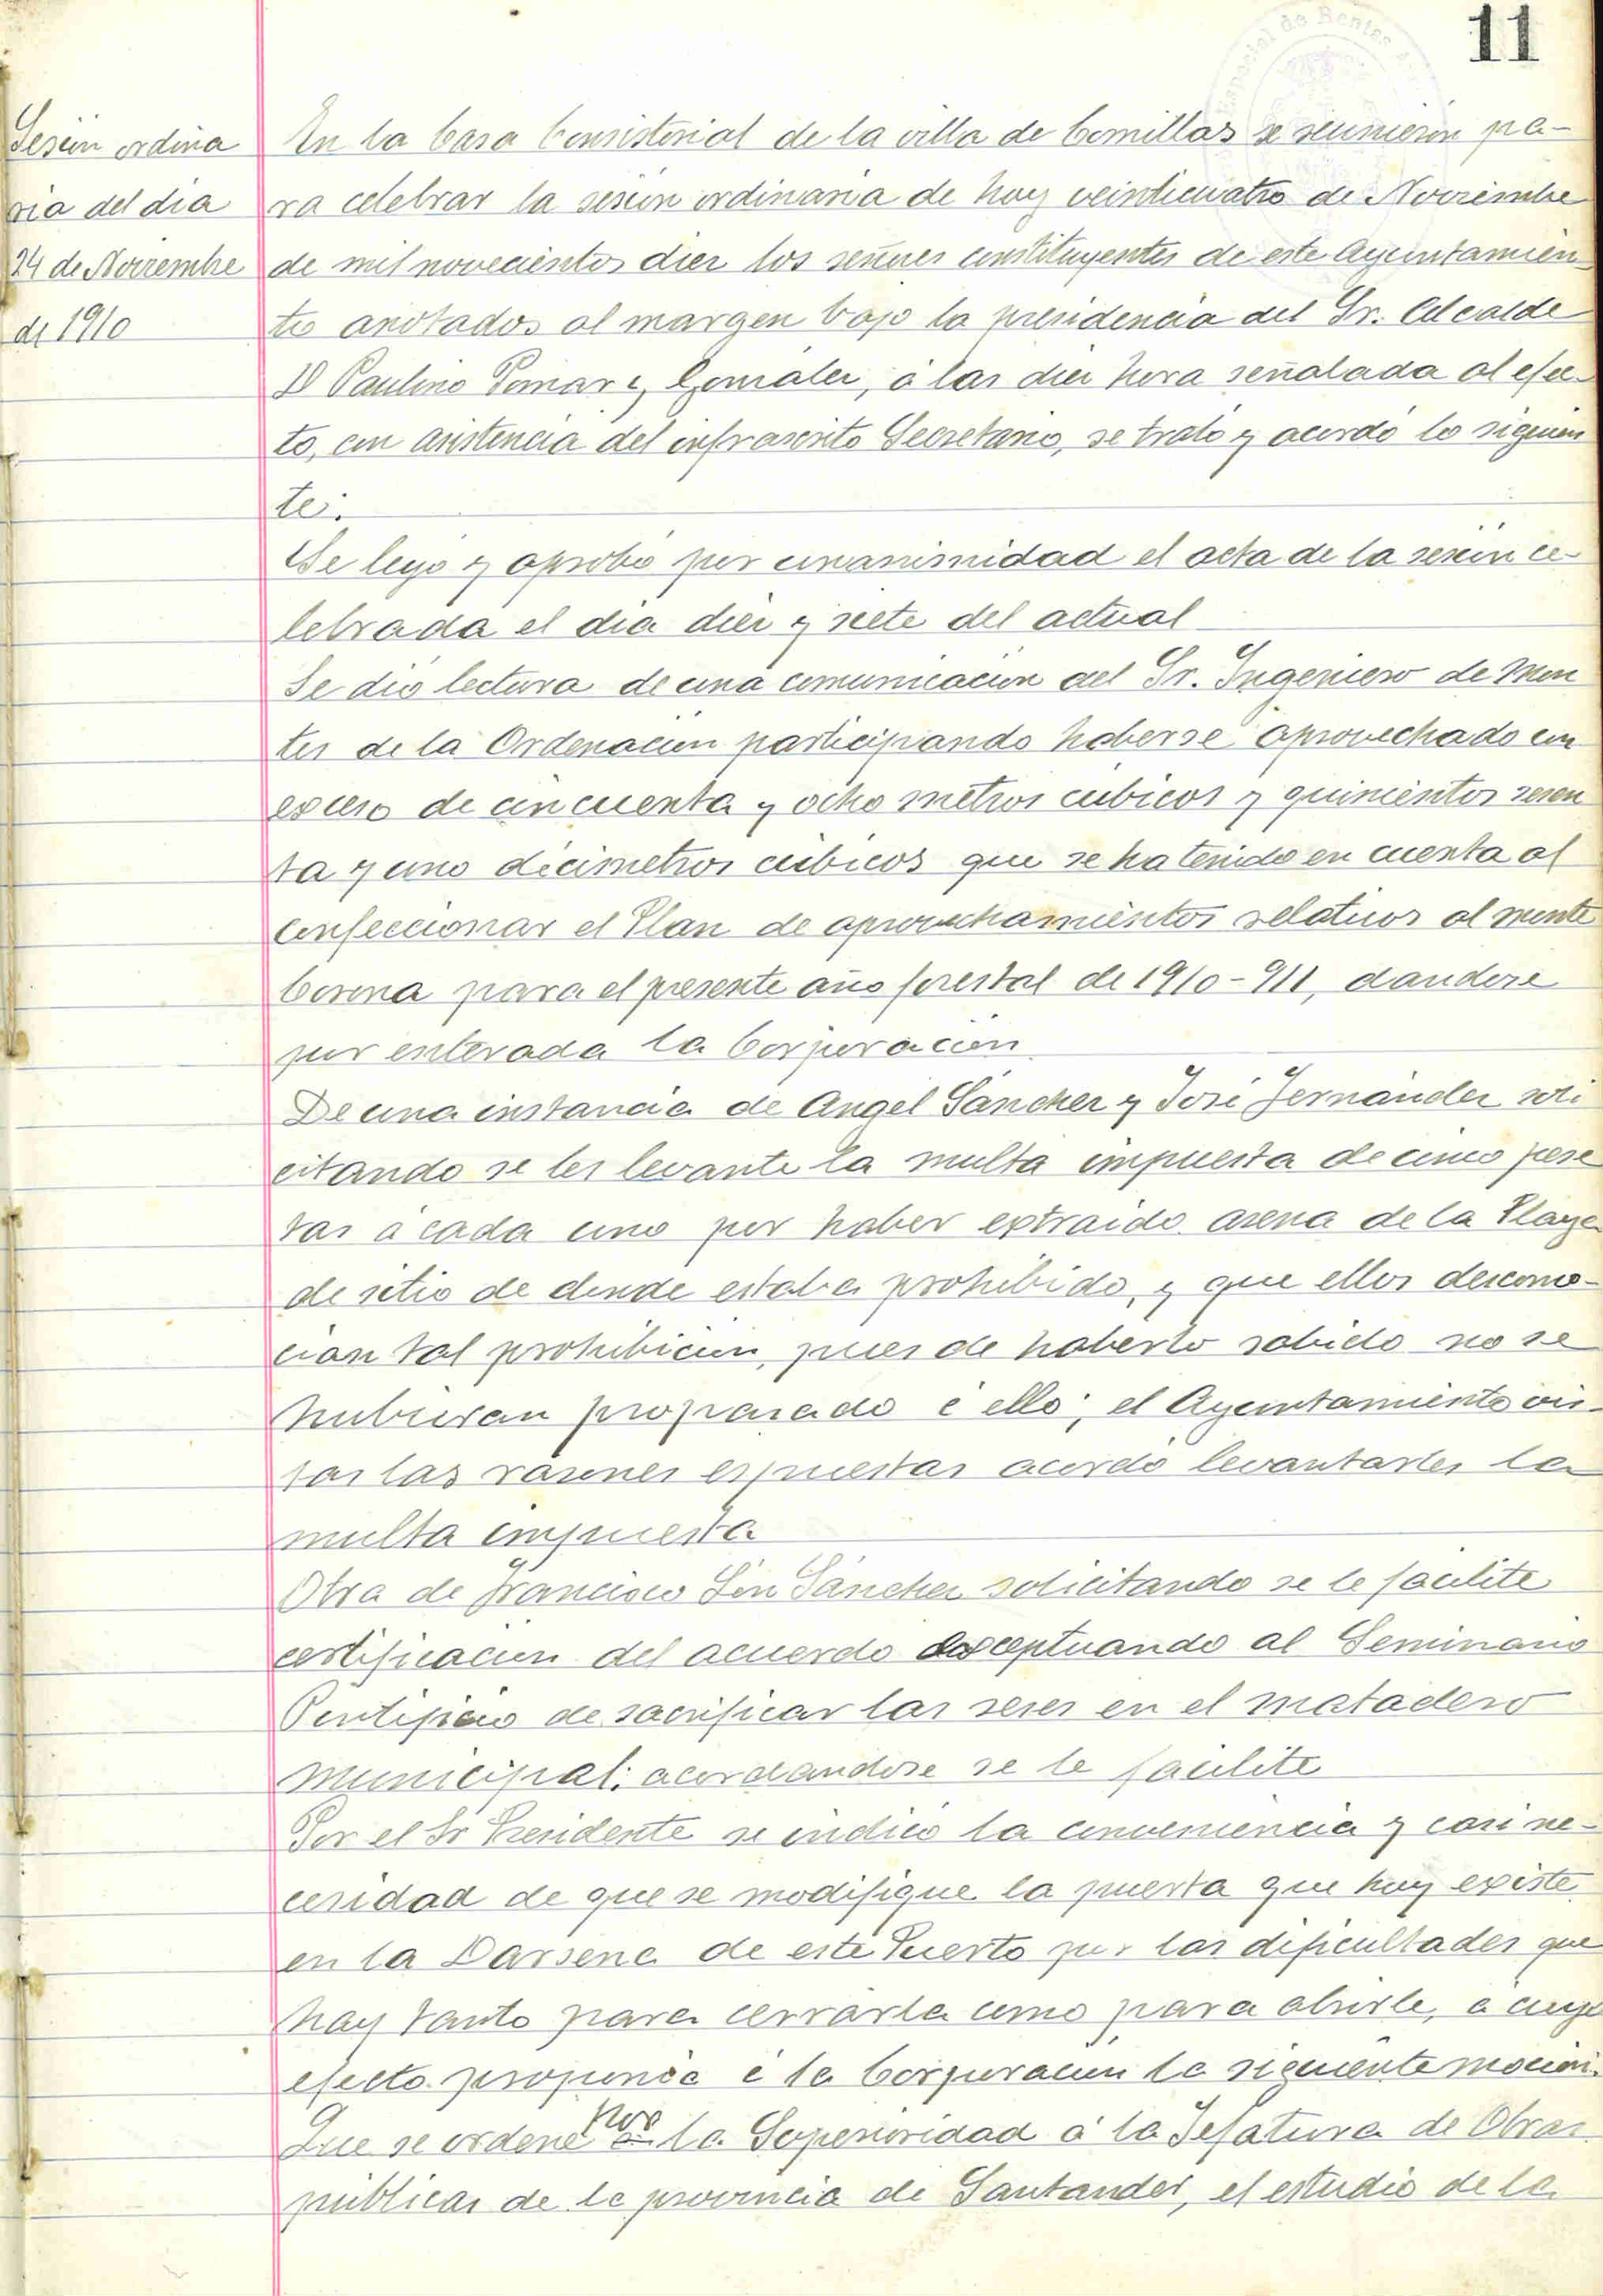 11
Sesión ordina
ria del dia
24 de Noviembre
de 1910
En la Casa Consistorial de la villa de Comillas se reunieron pa-
ra celebrar la sesión ordinaria de hoy veinticuatro de Noviembre
de mil novecientos diez los señores constituyentes de este Ayuntamien-
to anotados al margen bajo la presidencia del Sr. Alcalde
D Paulino Pomar y González, á las diez hora señalada al efec-
to, con asistencia del infrascrito Secretario, se trató y acordó lo siguien
te:
Se leyó y aprobó por unanimidad el acta de la sesión ce-
lebrada el dia diez y siete del actual
Se dió lectura de una comunicación del Sr. Ingeniero de Mon
tes de la Ordenación participando haberse aprovechado con
exceso de cincuenta y ocho metros cúbicos y quinientos sesen
ta y uno décimetros cúbicos que se ha tenido en cuenta al
confeccionar el Plan de aprovechamientos relativos al monte
Corona para el presente año forestal de 1910-911, dandose
por enterada la Corporación
De una instancia de Angel Sánchez y José Fernández soli
citando se les levante la multa impuesta de cinco pese
tas á cada uno por haber extraido arena de la Playa
de sitio de donde estaba prohibido, y que ellos descono-
cian tal prohibición, pues de haberlo sabido no se
hubieran propasado á ello; el Ayuntamiento vis-
tas las razones espuestas acordó levantarles la
multa impuesta
Otra de Francisco Sánchez solicitando se le facilite
certificación del acuerdo exceptuando al Seminario
Pontificio de sacrificar las reses en el matadero
municipal; acordandose se le facilite
Por el Sr Presidente se indicó la conveniencia y casi ne-
cesidad de que se modifique la puerta que hoy existe
en la Darsena de este Puerto por las dificultades que
hay tanto para cerrarla como para abrirle, á cuyo
efecto proponia á la Corporación la siguiente moción.
Que se ordene por la Superioridad á la Jefatura de Obras
públicas de la provincia de Santander, el estudio de la